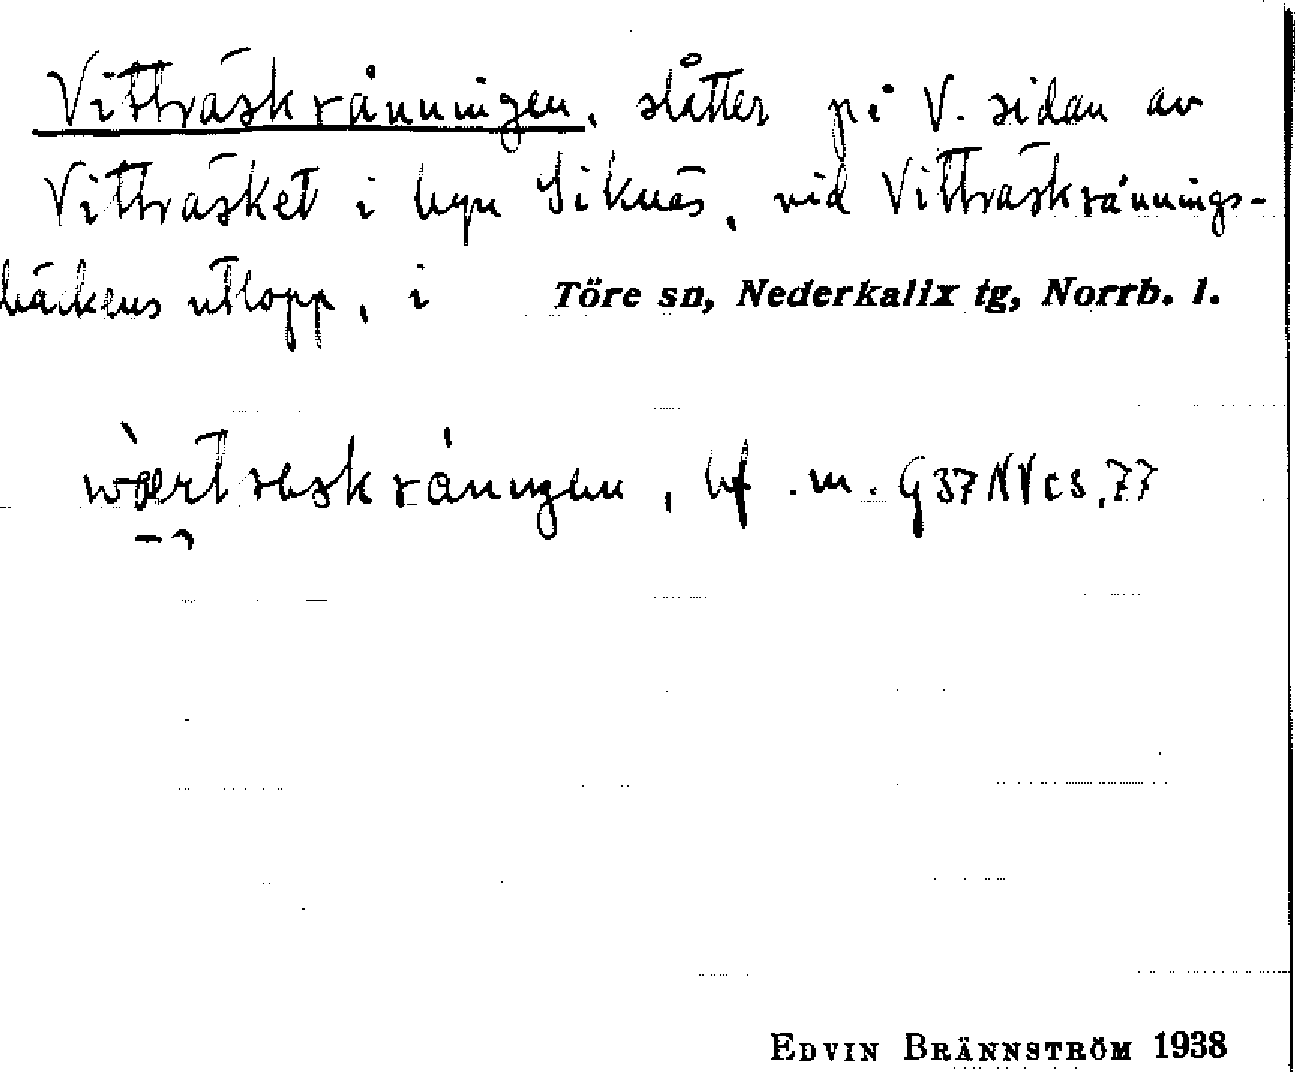 Vitträskränningen, slåtter på V. sidan av
Vitträsket i byn Siknäs, vid Vitträskrännings-
bäckens utlopp, i Töre sn, Nederkalix tg, Norrb. l.
bf. m. G37NVcs,77
EDVIN BRÄNNSTRÖM 1938